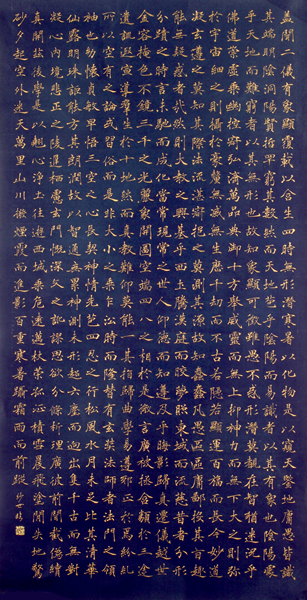 蓋聞二儀有象顯覆載以含生四時無形潛寒暑以化物是以窺天鑑地庸愚皆識
其端明陰洞陽賢哲罕窮其數然而天地苞乎陰陽而易識者以其有象也陰陽處
乎天地而難窮者以其無形也故知象顯可徵雖愚不惑形潛莫覩在智猶迷況乎
佛道崇虛乘幽控寂弘濟萬品典御十方舉威靈而無上抑神力而無下大之則彌
於宇宙細之則攝於毫釐無滅無生歷千劫而不古若隱若顯運百福而長今妙道
凝玄遵之莫知其際法流湛寂挹之莫測其源故知蠢蠢凡愚區區庸鄙投其旨趣
能無疑惑者哉然則大教之興基乎西土騰漢庭而皎夢照東域而流慈昔者分形
分蹟之時言未馳而成化當常現常之世人仰德而知遵及乎晦影歸真遷儀越世
金容掩色不鏡三千之光麗象開圖空端四八之相於是微言廣被拯含類於三途
遺訓遐宣導群生於十地然而真教難仰莫能一其指歸曲學易遵邪正於焉紛糾
所以空有之論或習俗而是非大小之乘乍沿時而隆替有玄奘法師者法門之領
袖也幼懷貞敏早悟三空之心長契神情先苞四忍之行松風水月未足比其清華
仙露明珠詎能方其朗潤故以智通無累神測未形超六塵而迥出隻千古而無對
凝心內境悲正法之陵遲栖慮玄門慨深文之訛謬思欲分條析理廣彼前聞截偽續
真開茲後學是以翹心淨土往遊西域乘危遠邁杖策孤征積雪晨飛途間失地驚
砂夕起空外迷天萬里山川撥煙霞而進影百重寒暑躡霜雨而前蹤